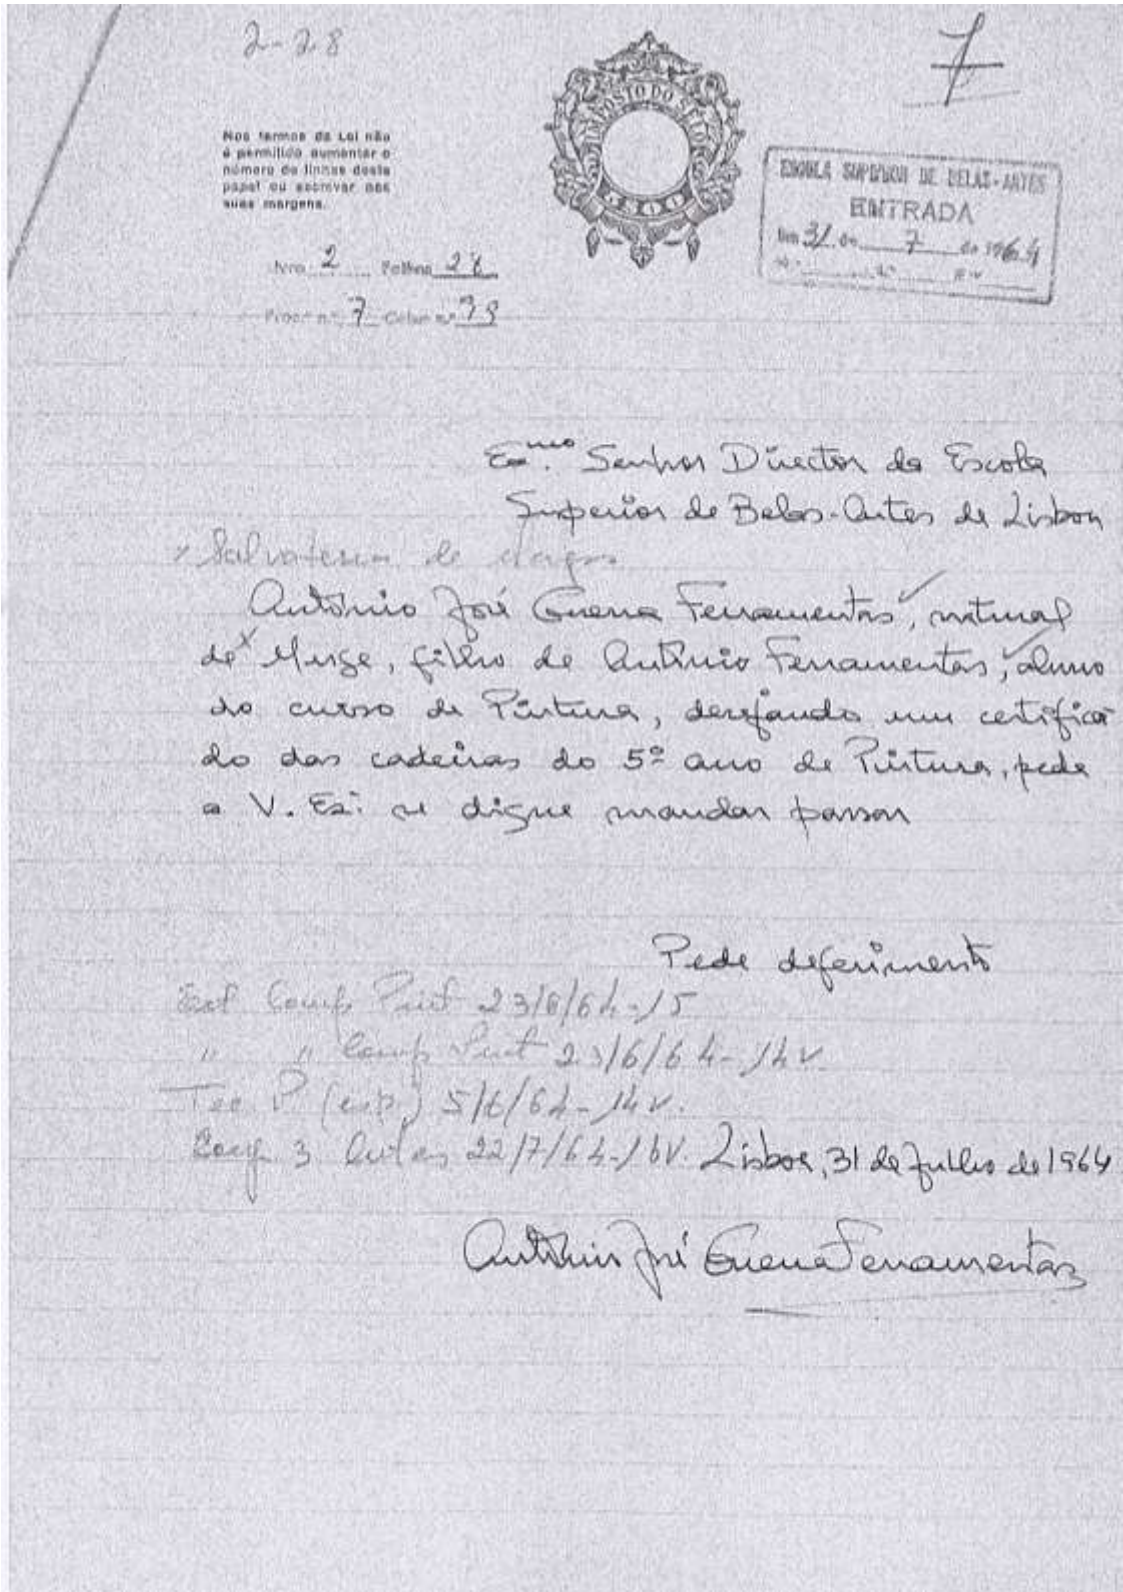 2-28
7
Nos termos da Lei não
é permitido aumentar o
número de linhas deste
papel ou escrever nas
suas margens.
IMPOSTO DO SELO
5$00
ESCOLA SUPERIOR DE BELAS-ARTES
ENTRADA
Em 31 de 7 de 1964
Livro 2 Folhas 28
Proc. n.º 7 Color n.º
Ex.mo Senhor Director da Escola
Superior de Belas-Artes de Lisboa
x Salvaterra de Magos
António José Guerra Ferramentas, natural
de x Muge, filho de António Ferramentas, aluno
do curso de Pintura, desejando um certifica
do das cadeiras do 5º ano de Pintura, pede
a V. Exª. se digne mandar passar
Pede deferimento
Comp Pint 23/6/64-15
" " Comp Pint 23/6/64-14v.
Tec P. (esp.) 5/6/64-14v.
3 Artes 22/7/64-16v. Lisboa, 31 de Julho de 1964
António José Guerra Ferramentas